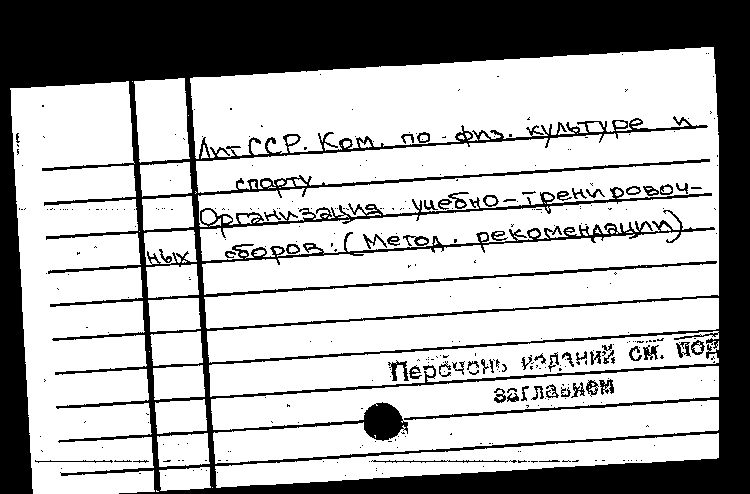 ЛитССР. Ком. по физ. культуре и
спорту.
Организация учебно-тренировоч-
ных сборов. (Метод. рекомендации).
Перечень изданий см. под
заглавием